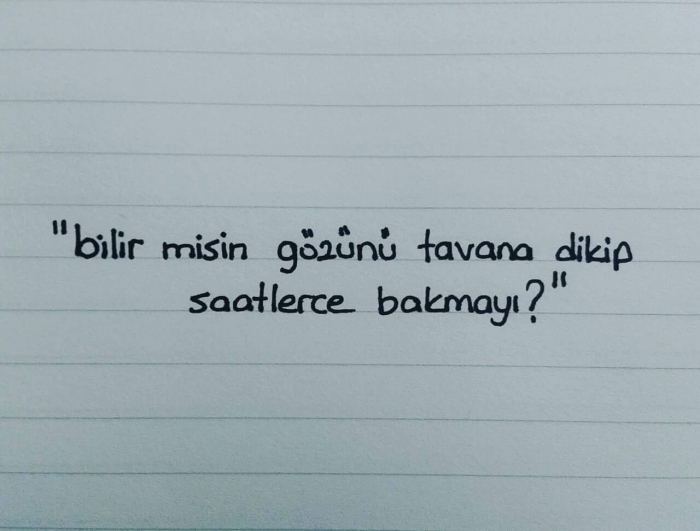 "bilir misin gözünü tavana dikip
saatlerce bakmayı?"